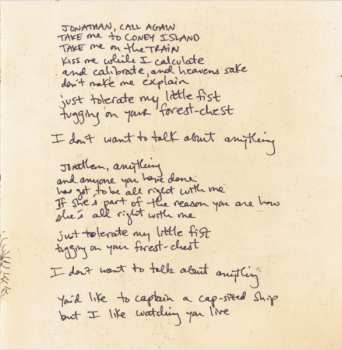 JONATHAN, CALL AGAIN
TAKE me to CONEY ISLAND
TAKE me on the TRAIN
KISS me while I calculate
and calibrate, and heavens sake
don't make me explain
just tolerate my little fist
tugging on your forest-chest
I don't want to talk about anything
Jonathan, anything
and anyone you have done
has got to be all right with me
If she's part of the reason you are how
she's all right with me
just tolerate my little fist
tugging on your forest-chest
I don't want to talk about anything
You'd like to captain a cap-sized ship
but I like watching you live